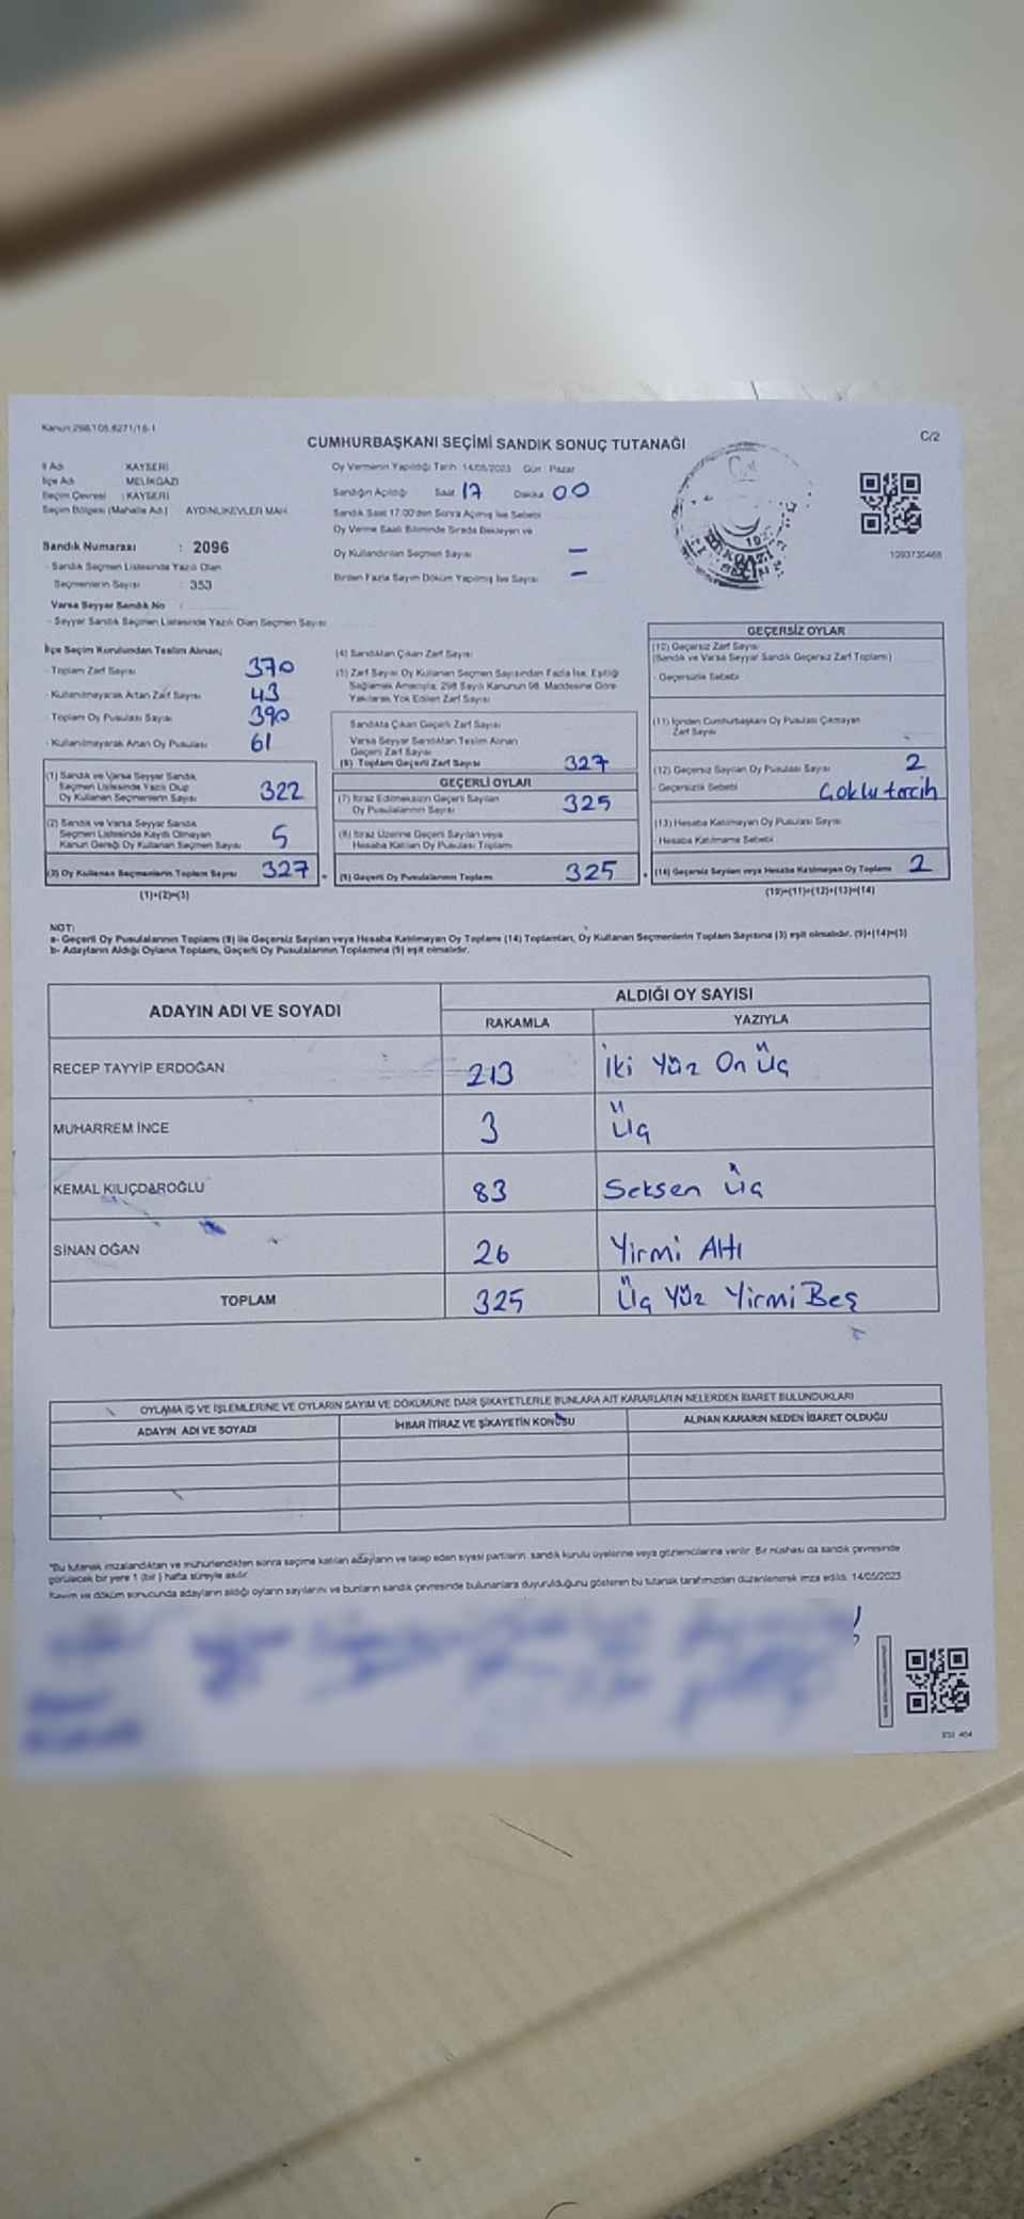 Kanun:298,105,6271/16-1
C/2
CUMHURBAŞKANI SEÇİMİ SANDIK SONUÇ TUTANAĞI
İl Adı KAYSERİ
İlçe Adı MELİKGAZİ
Seçim Çevresi : KAYSERİ
Seçim Bölgesi (Mahalle Adı) AYDINLIKEVLER MAH.
Sandık Numarası : 2096
- Sandık Seçmen Listesinde Yazılı Olan
Seçmenlerin Sayısı : 353
Varsa Seyyar Sandık No :
- Seyyar Sandık Seçmen Listesinde Yazılı Olan Seçmen Sayısı
Oy Vermenin Yapıldığı Tarih 14/05/2023 Gün : Pazar
Sandığın Açıldığı Saat 17 Dakika 00
Sandık Saat 17:00'den Sonra Açılmış İse Sebebi
Oy Verme Saati Bitiminde Sırada Bekleyen ve
Oy Kullandırılan Seçmen Sayısı –
Birden Fazla Sayım Döküm Yapılmış İse Sayısı –
1093735468
İlçe Seçim Kurulundan Teslim Alınan;
- Toplam Zarf Sayısı 370
- Kullanılmayarak Artan Zarf Sayısı 43
- Toplam Oy Pusulası Sayısı 390
- Kullanılmayarak Artan Oy Pusulası 61
(1) Sandık ve Varsa Seyyar Sandık
Seçmen Listesinde Yazılı Olup
Oy Kullanan Seçmenlerin Sayısı 322
(2) Sandık ve Varsa Seyyar Sandık
Seçmen Listesinde Kayıtlı Olmayan
Kanun Gereği Oy Kullanan Seçmen Sayısı 5
(3) Oy Kullanan Seçmenlerin Toplam Sayısı 327
(1)+(2)=(3)
(4) Sandıktan Çıkan Zarf Sayısı
(5) Zarf Sayısı Oy Kullanan Seçmen Sayısından Fazla İse, Eşitliği
Sağlamak Amacıyla, 298 Sayılı Kanunun 98. Maddesine Göre
Yakılarak Yok Edilen Zarf Sayısı
Sandıkta Çıkan Geçerli Zarf Sayısı
Varsa Seyyar Sandıktan Teslim Alınan
Geçerli Zarf Sayısı
(6) Toplam Geçerli Zarf Sayısı 327
GEÇERLİ OYLAR
(7) İtiraz Edilmeksizin Geçerli Sayılan
Oy Pusulalarının Sayısı 325
(8) İtiraz Üzerine Geçerli Sayılan veya
Hesaba Katılan Oy Pusulası Toplam
(9) Geçerli Oy Pusulalarının Toplamı 325
GEÇERSİZ OYLAR
(10) Geçersiz Zarf Sayısı
(Sandık ve Varsa Seyyar Sandık Geçersiz Zarf Toplamı)
- Geçersizlik Sebebi
(11) İçinden Cumhurbaşkanı Oy Pusulası Çıkmayan
Zarf Sayısı
(12) Geçersiz Sayılan Oy Pusulası Sayısı 2
- Geçersizlik Sebebi Çoklu tercih
(13) Hesaba Katılmayan Oy Pusulası Sayısı
- Hesaba Katılmama Sebebi
(14) Geçersiz Sayılan veya Hesaba Katılmayan Oy Toplamı 2
(10)+(11)+(12)+(13)=(14)
NOT:
a- Geçerli Oy Pusulalarının Toplamı (9) ile Geçersiz Sayılan veya Hesaba Katılmayan Oy Toplamı (14) Toplamları, Oy Kullanan Seçmenlerin Toplam Sayısına (3) eşit olmalıdır. (9)+(14)=(3)
b- Adayların Aldığı Oyların Toplamı, Geçerli Oy Pusulalarının Toplamına (9) eşit olmalıdır.
ADAYIN ADI VE SOYADI
ALDIĞI OY SAYISI
RAKAMLA YAZIYLA
RECEP TAYYİP ERDOĞAN 213 İki Yüz On Üç
MUHARREM İNCE 3 Üç
KEMAL KILIÇDAROĞLU 83 Seksen Üç
SİNAN OĞAN 26 Yirmi Altı
TOPLAM 325 Üç Yüz Yirmi Beş
OYLAMA İŞ VE İŞLEMLERİNE VE OYLARIN SAYIM VE DÖKÜMÜNE DAİR ŞİKAYETLERLE BUNLARA AİT KARARLARIN NELERDEN İBARET BULUNDUKLARI
ADAYIN ADI VE SOYADI İHBAR İTİRAZ VE ŞİKAYETİN KONUSU ALINAN KARARIN NEDEN İBARET OLDUĞU
*Bu tutanak imzalandıktan ve mühürlendikten sonra seçime katılan adayların ve talep eden siyasi partilerin sandık kurulu üyelerine veya gözlemcilerine verilir. Bir nüshası da sandık çevresinde
görülecek bir yere 1 (bir) hafta süreyle asılır.
Sayım ve döküm sonucunda adayların aldığı oyların sayılarını ve bunların sandık çevresinde bulunanlara duyurulduğunu gösteren bu tutanak tarafımızdan düzenlenerek imza edildi. 14/05/2023